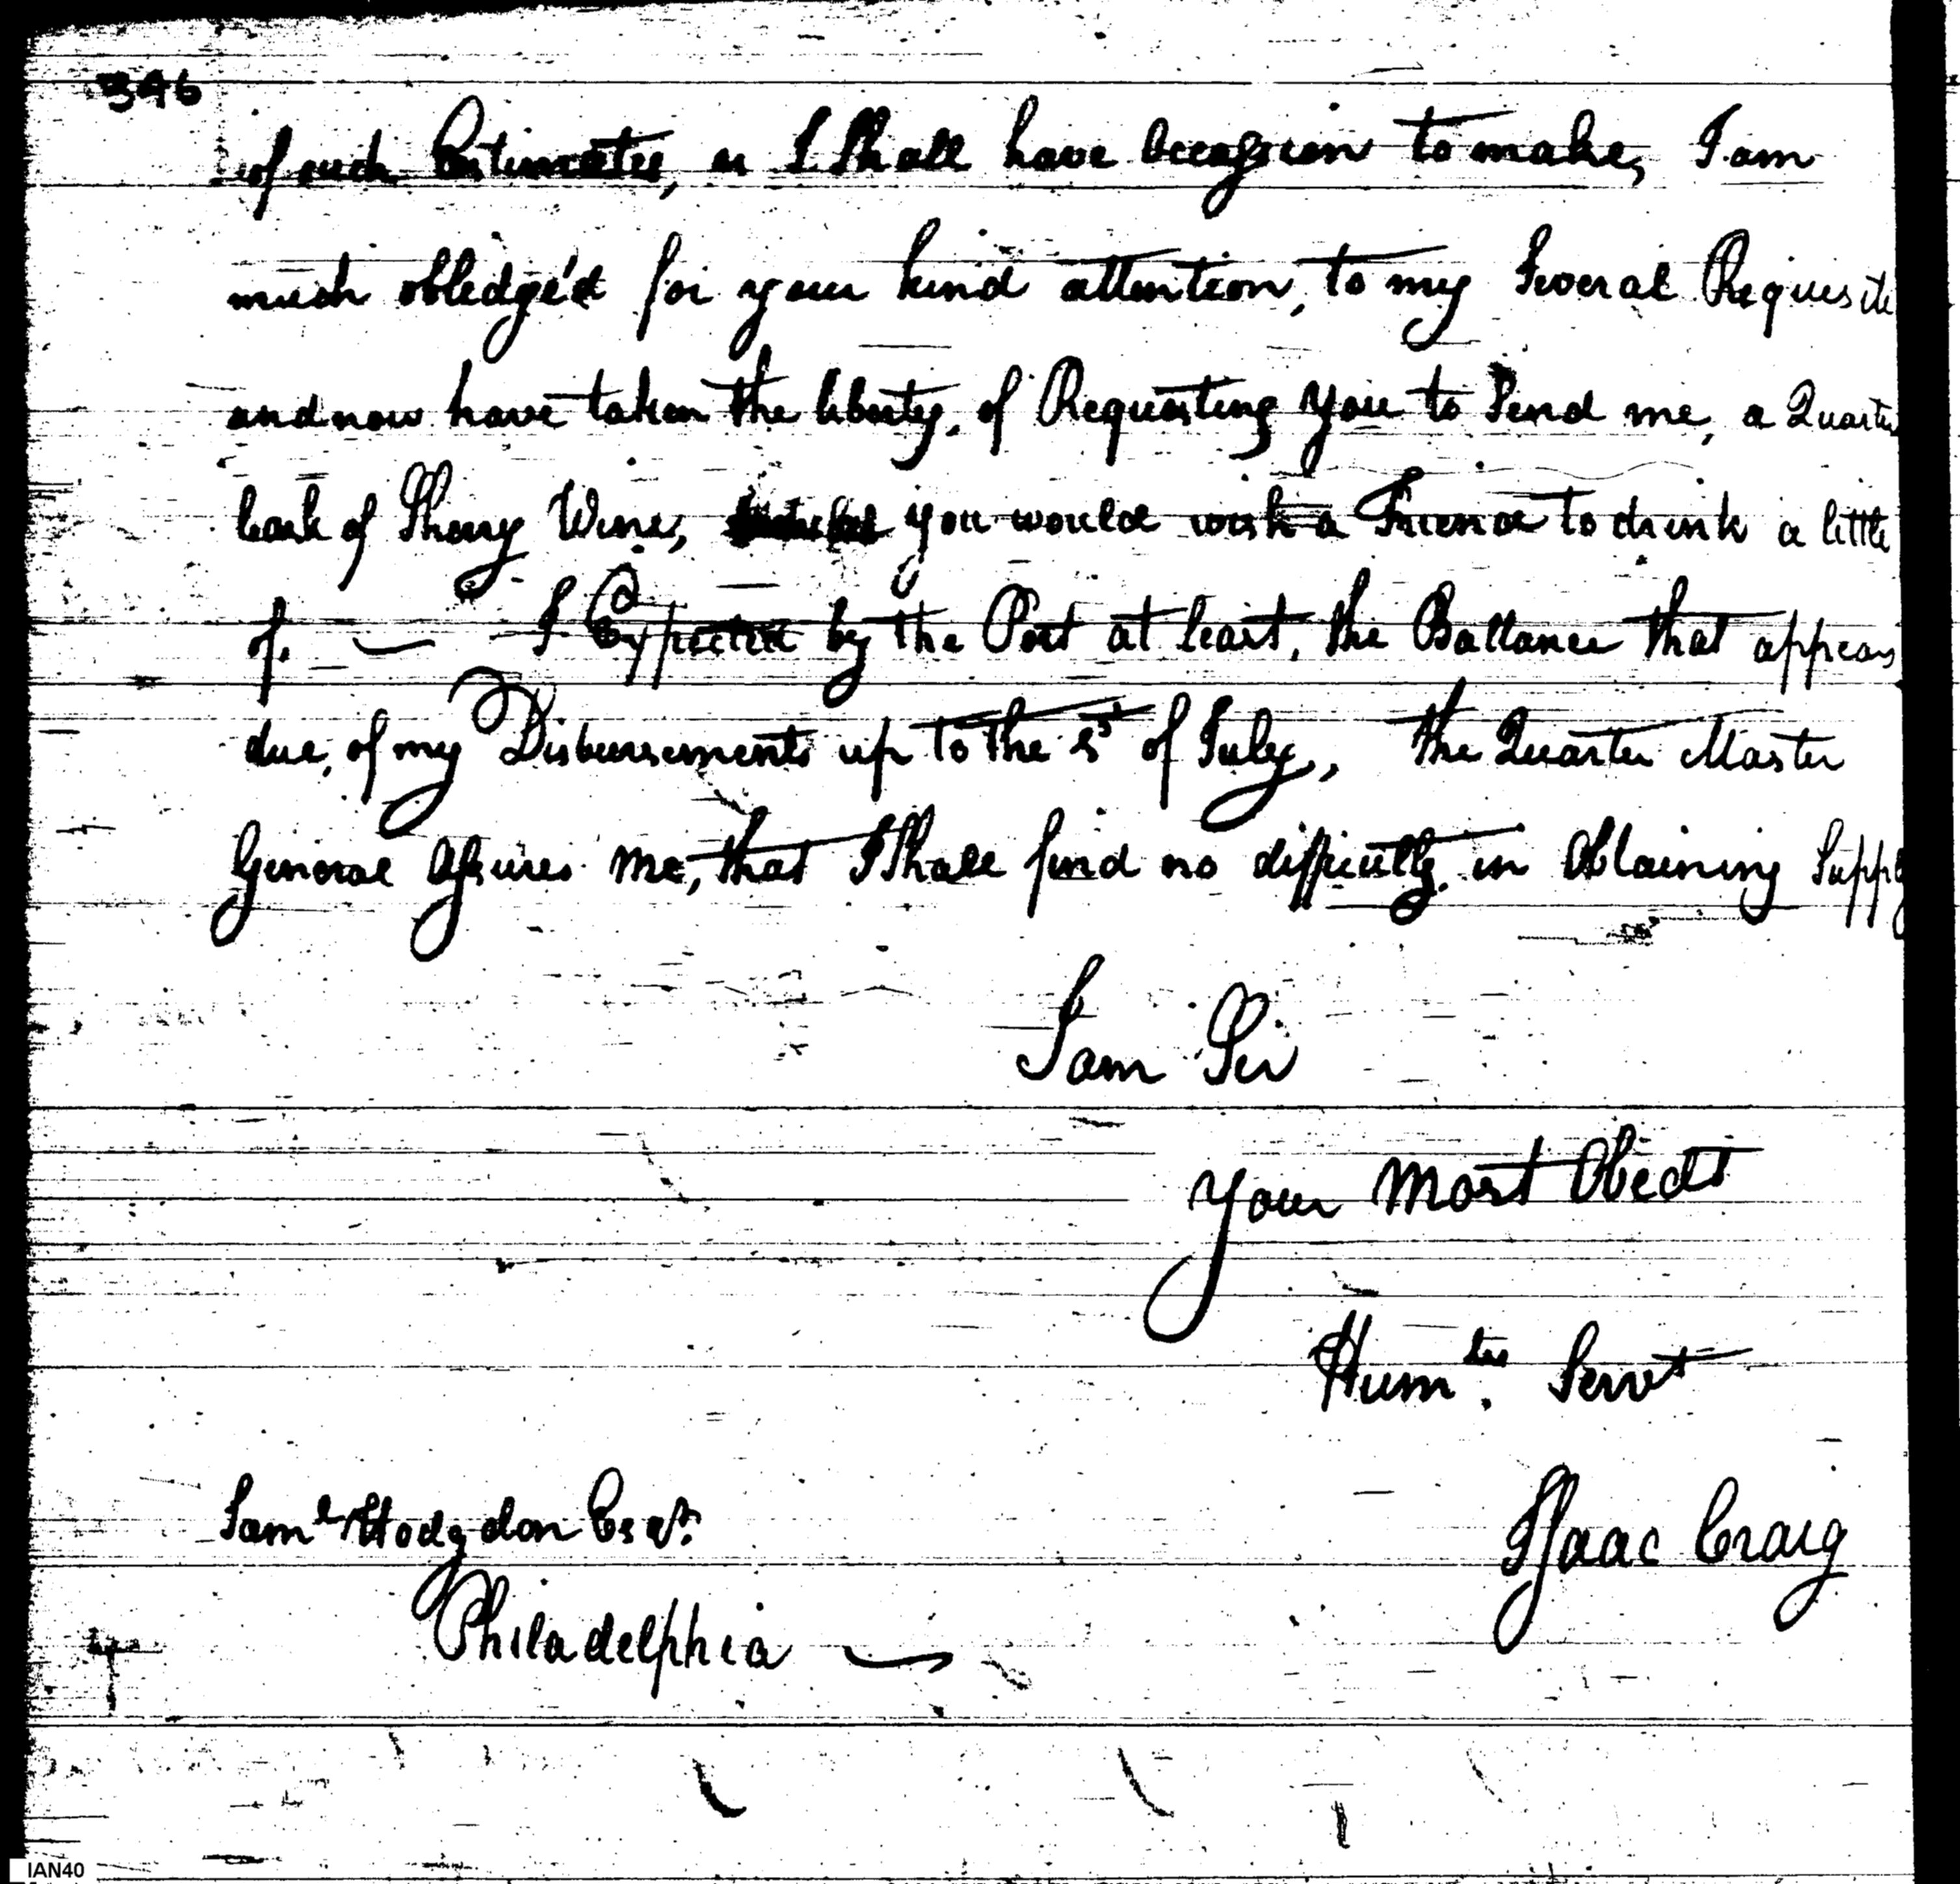 396
of such Estimates, as I Shall have Occassion to make, I am
much obledge'd for your kind attention, to my Several Requisite
and now have taken the liberty, of Requesting you to Send me, a Quarter
Cask of Sherry Wine, you would wish a Friend to drink a little
of. — I Expected by the Post at least, the Ballance that appears
due, of my Disbursements up to the of July,, the Quarter Master
General Assures me, that I Shall find no difficulty, in Obtaining Supply
I am Sir
Your Most Obedt
Humble. Servt
Saml Hodgdon Esqr.
Isaac Craig
Philadelphia —
IAN40